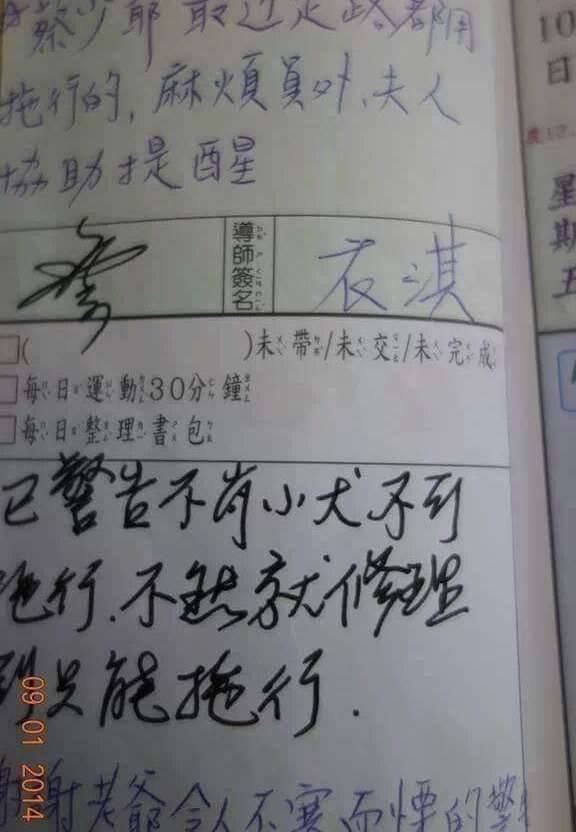 蔡少爺最近走路都用
拖行的,麻煩員外、夫人
協助提醒
導師簽名
衣淇
( )未帶/未交/未完成
每日運動30分鐘
每日整理書包
已警告不肖小犬不可
拖行.不然就修理
到只能拖行.
謝謝老爺令人不寒而慄的警
10
日
星
期
五
09 01 2014